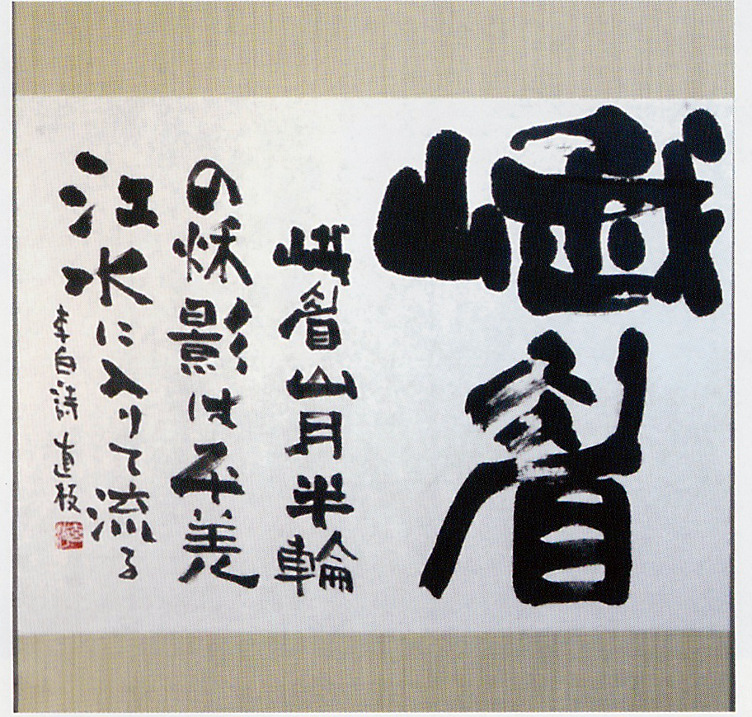 峨眉
峨眉山月半輪
の秋影は平羌
江水に入りて流る
李白詩 直